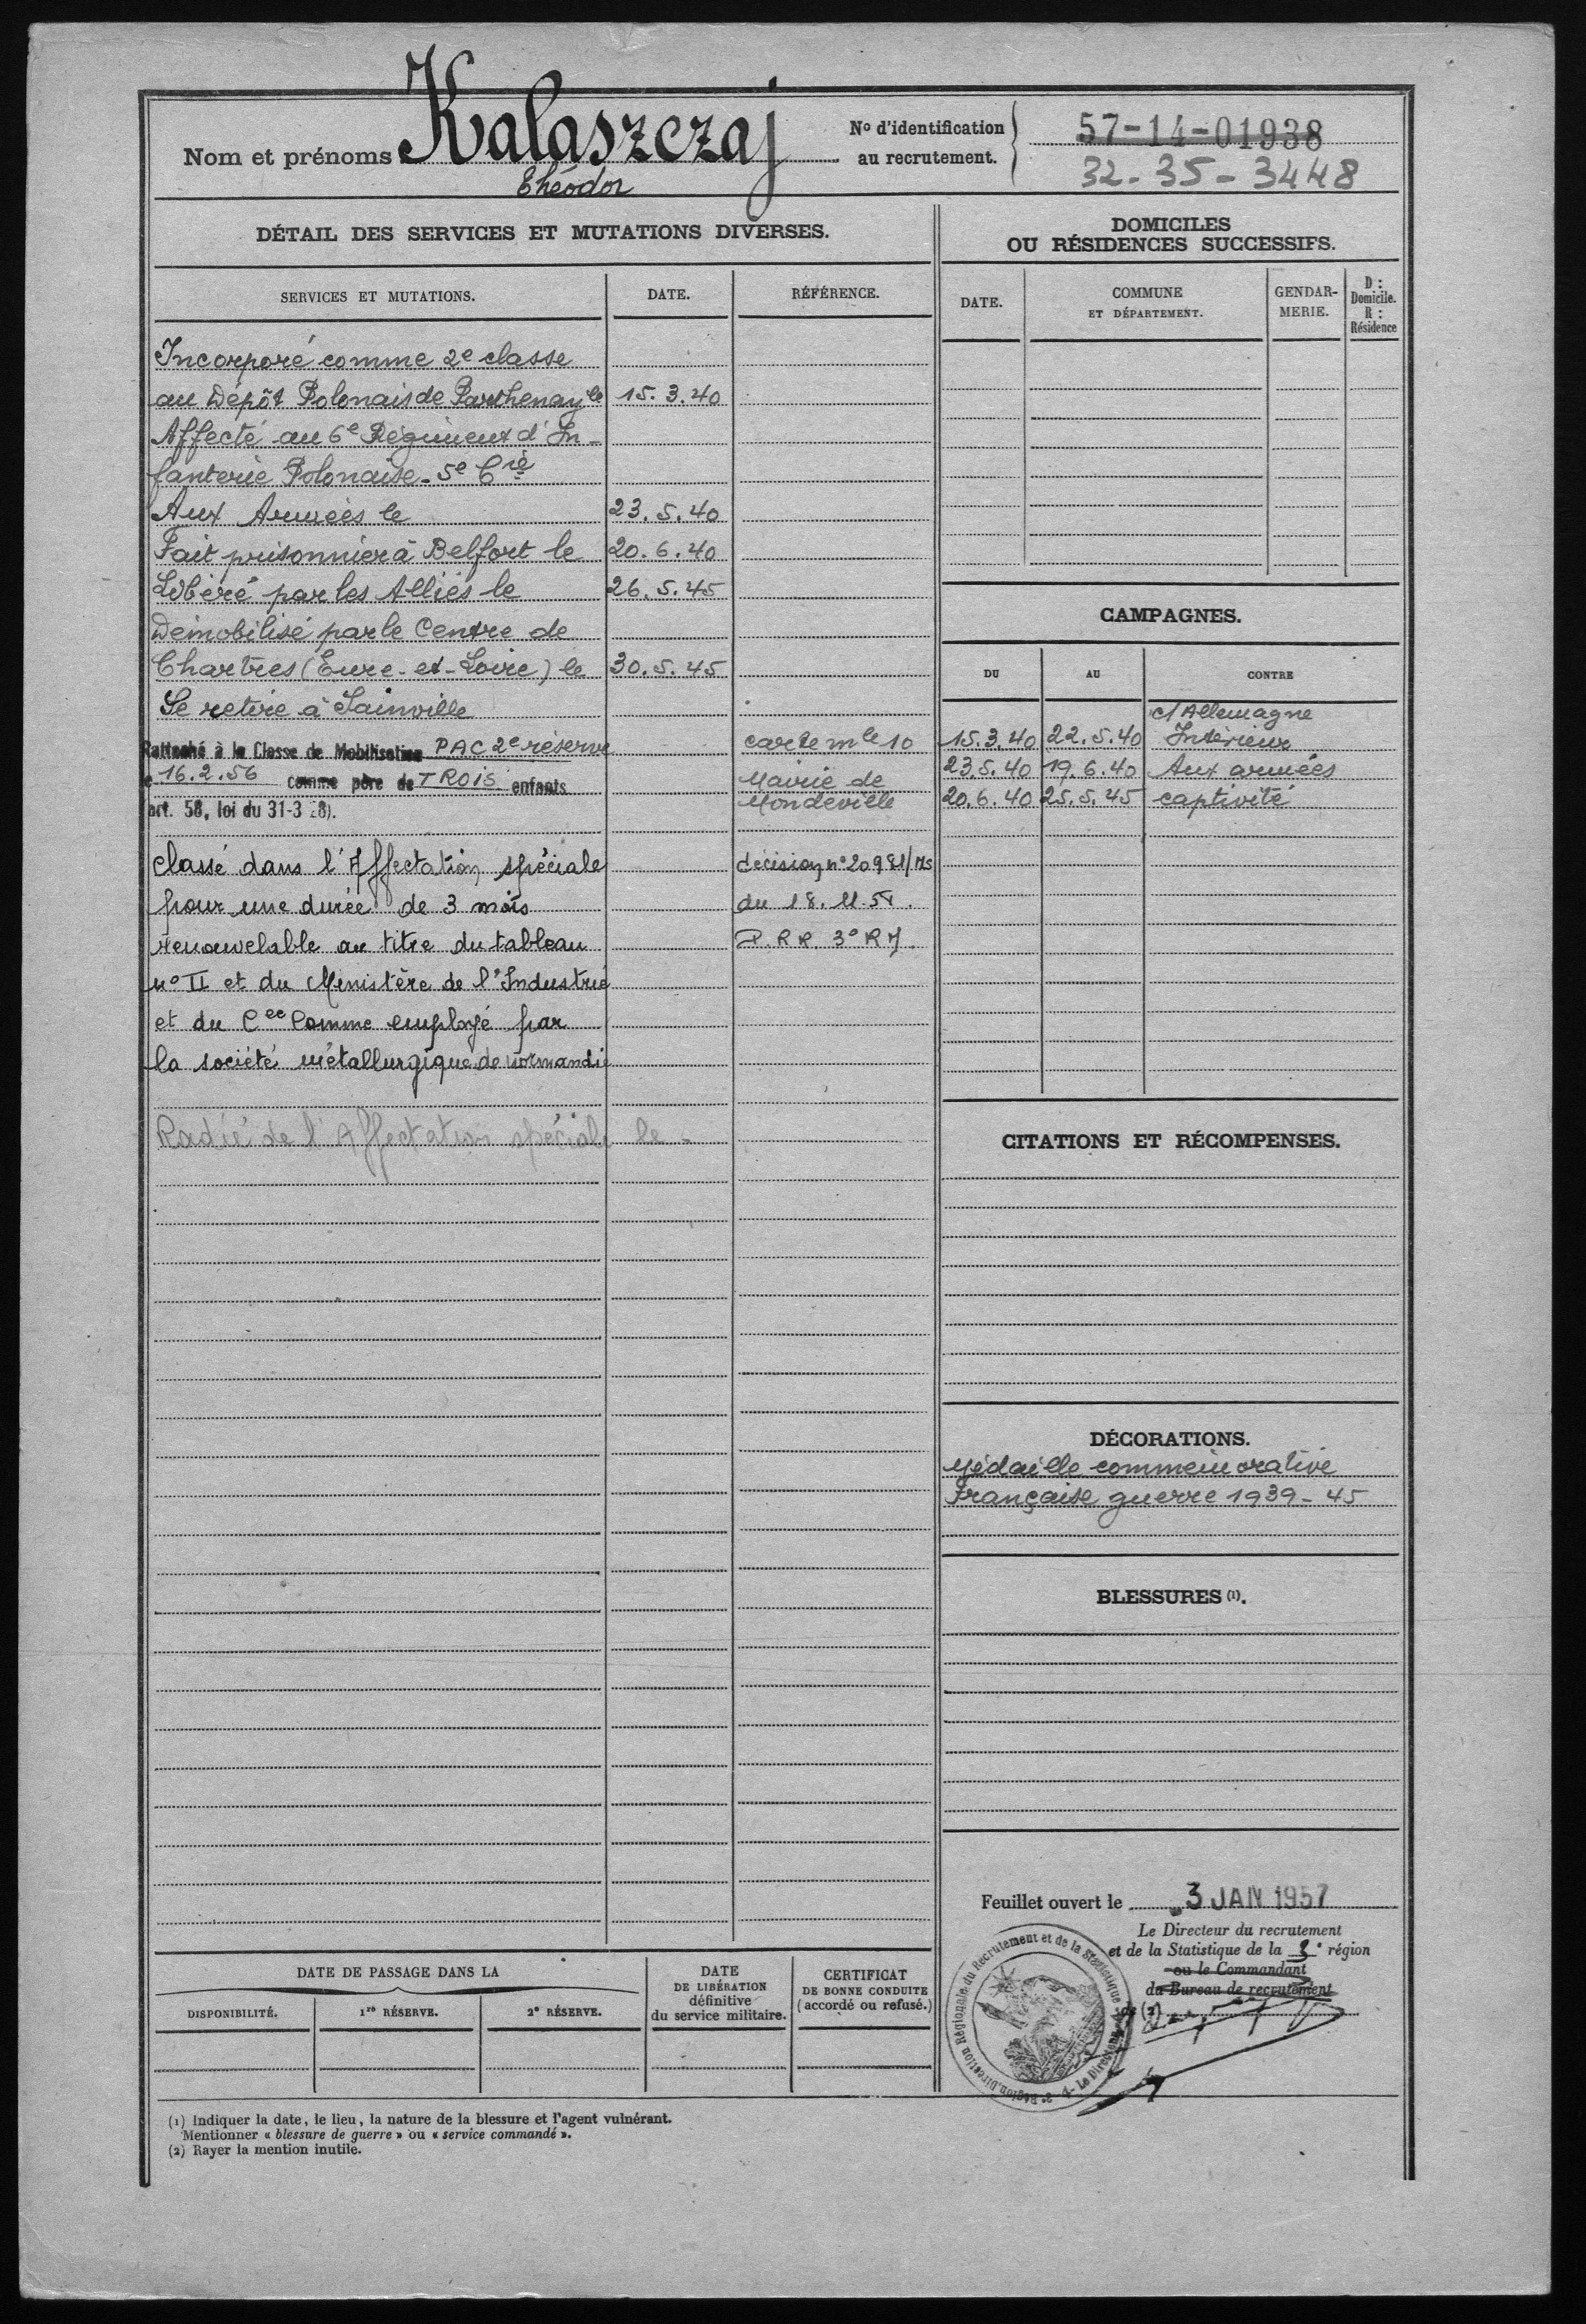 Nom et prénoms Kalaszczaj
Théodor
N° d'identification
au recrutement.
57-14-01938
32-35-3448
DÉTAIL DES SERVICES ET MUTATIONS DIVERSES.
SERVICES ET MUTATIONS. DATE. RÉFÉRENCE.
Incorporé comme 2e classe
au Dépôt Polonais de Parthenay le 15.3.40
Affecté au 6e Régiment d'In-
fanterie Polonaise. 5e Cie
Aux Armées le 23.5.40
Fait prisonnier à Belfort le 20.6.40
Libéré par les Alliés le 26.5.45
Démobilisé par le Centre de
Chartres (Eure-et-Loire) le 30.5.45
Se retire à Sainville
Rattaché à la Classe de Mobilisation PAC 2e réserve carte mle 10
le 16.2.56 comme père de TROIS enfants Mairie de
art. 58, loi du 31-3 28). Mondeville
classé dans l'Affectation spéciale décision n° 20981/MS
pour une durée de 3 mois du 18.11.57.
renouvelable au titre du tableau P.R.R. 3e RM.
n° II et du Ministère de l'Industrie
et du Cce Comme employé par
la société métallurgique de normandie
Radié de l'Affectation spéciale le -
DATE DE PASSAGE DANS LA
DISPONIBILITÉ. 1re RÉSERVE. 2e RÉSERVE.
DATE
DE LIBÉRATION
définitive
du service militaire.
CERTIFICAT
DE BONNE CONDUITE
(accordé ou refusé.)
DOMICILES
OU RÉSIDENCES SUCCESSIFS.
DATE.
COMMUNE
ET DÉPARTEMENT.
GENDAR-
MERIE.
D :
Domicile.
R :
Résidence
CAMPAGNES.
DU AU CONTRE
c/ Allemagne
15.3.40 22.5.40 Intérieur
23.5.40 19.6.40 Aux armées
20.6.40 25.5.45 captivité
CITATIONS ET RÉCOMPENSES.
DÉCORATIONS.
Médaille commémorative
Française guerre 1939-45
BLESSURES (1).
Feuillet ouvert le 3 JAN 1957
Le Directeur du recrutement
et de la Statistique de la 3e région
ou le Commandant
du Bureau de recrutement
de (2)
Direction Régionale du Recrutement et de la Statistique
(1) Indiquer la date, le lieu, la nature de la blessure et l'agent vulnérant.
Mentionner « blessure de guerre » ou « service commandé ».
(2) Rayer la mention inutile.